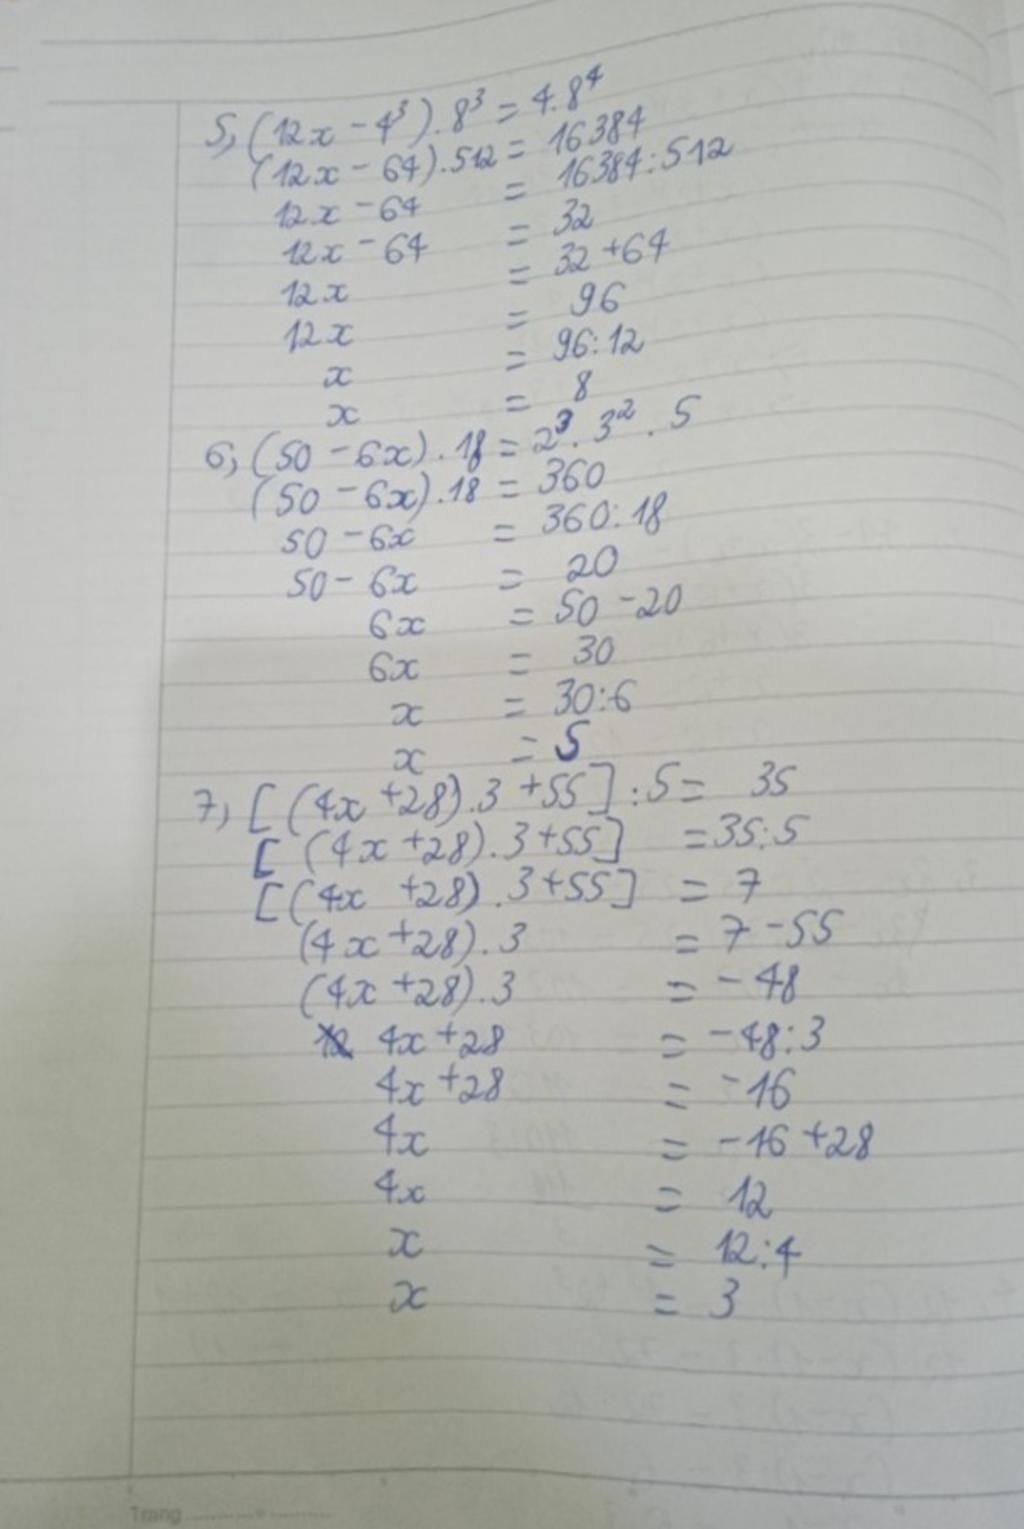 5, (12x - 4³). 8³ = 4.8⁴
(12x - 64).512 = 16384
12x - 64 = 16384:512
12x - 64 = 32
12x = 32 + 64
12x = 96
x = 96:12
x = 8
6, (50 - 6x). 18 = 2³. 3². 5
(50 - 6x).18 = 360
50 - 6x = 360:18
50 - 6x = 20
6x = 50 - 20
6x = 30
x = 30:6
x = 5
7, [(4x + 28).3 + 55]:5 = 35
[(4x + 28).3 + 55] = 35:5
[(4x + 28).3 + 55] = 7
(4x + 28).3 = 7 - 55
(4x + 28).3 = -48
4x + 28 = -48:3
4x + 28 = -16
4x = -16 + 28
4x = 12
x = 12:4
x = 3
Trang